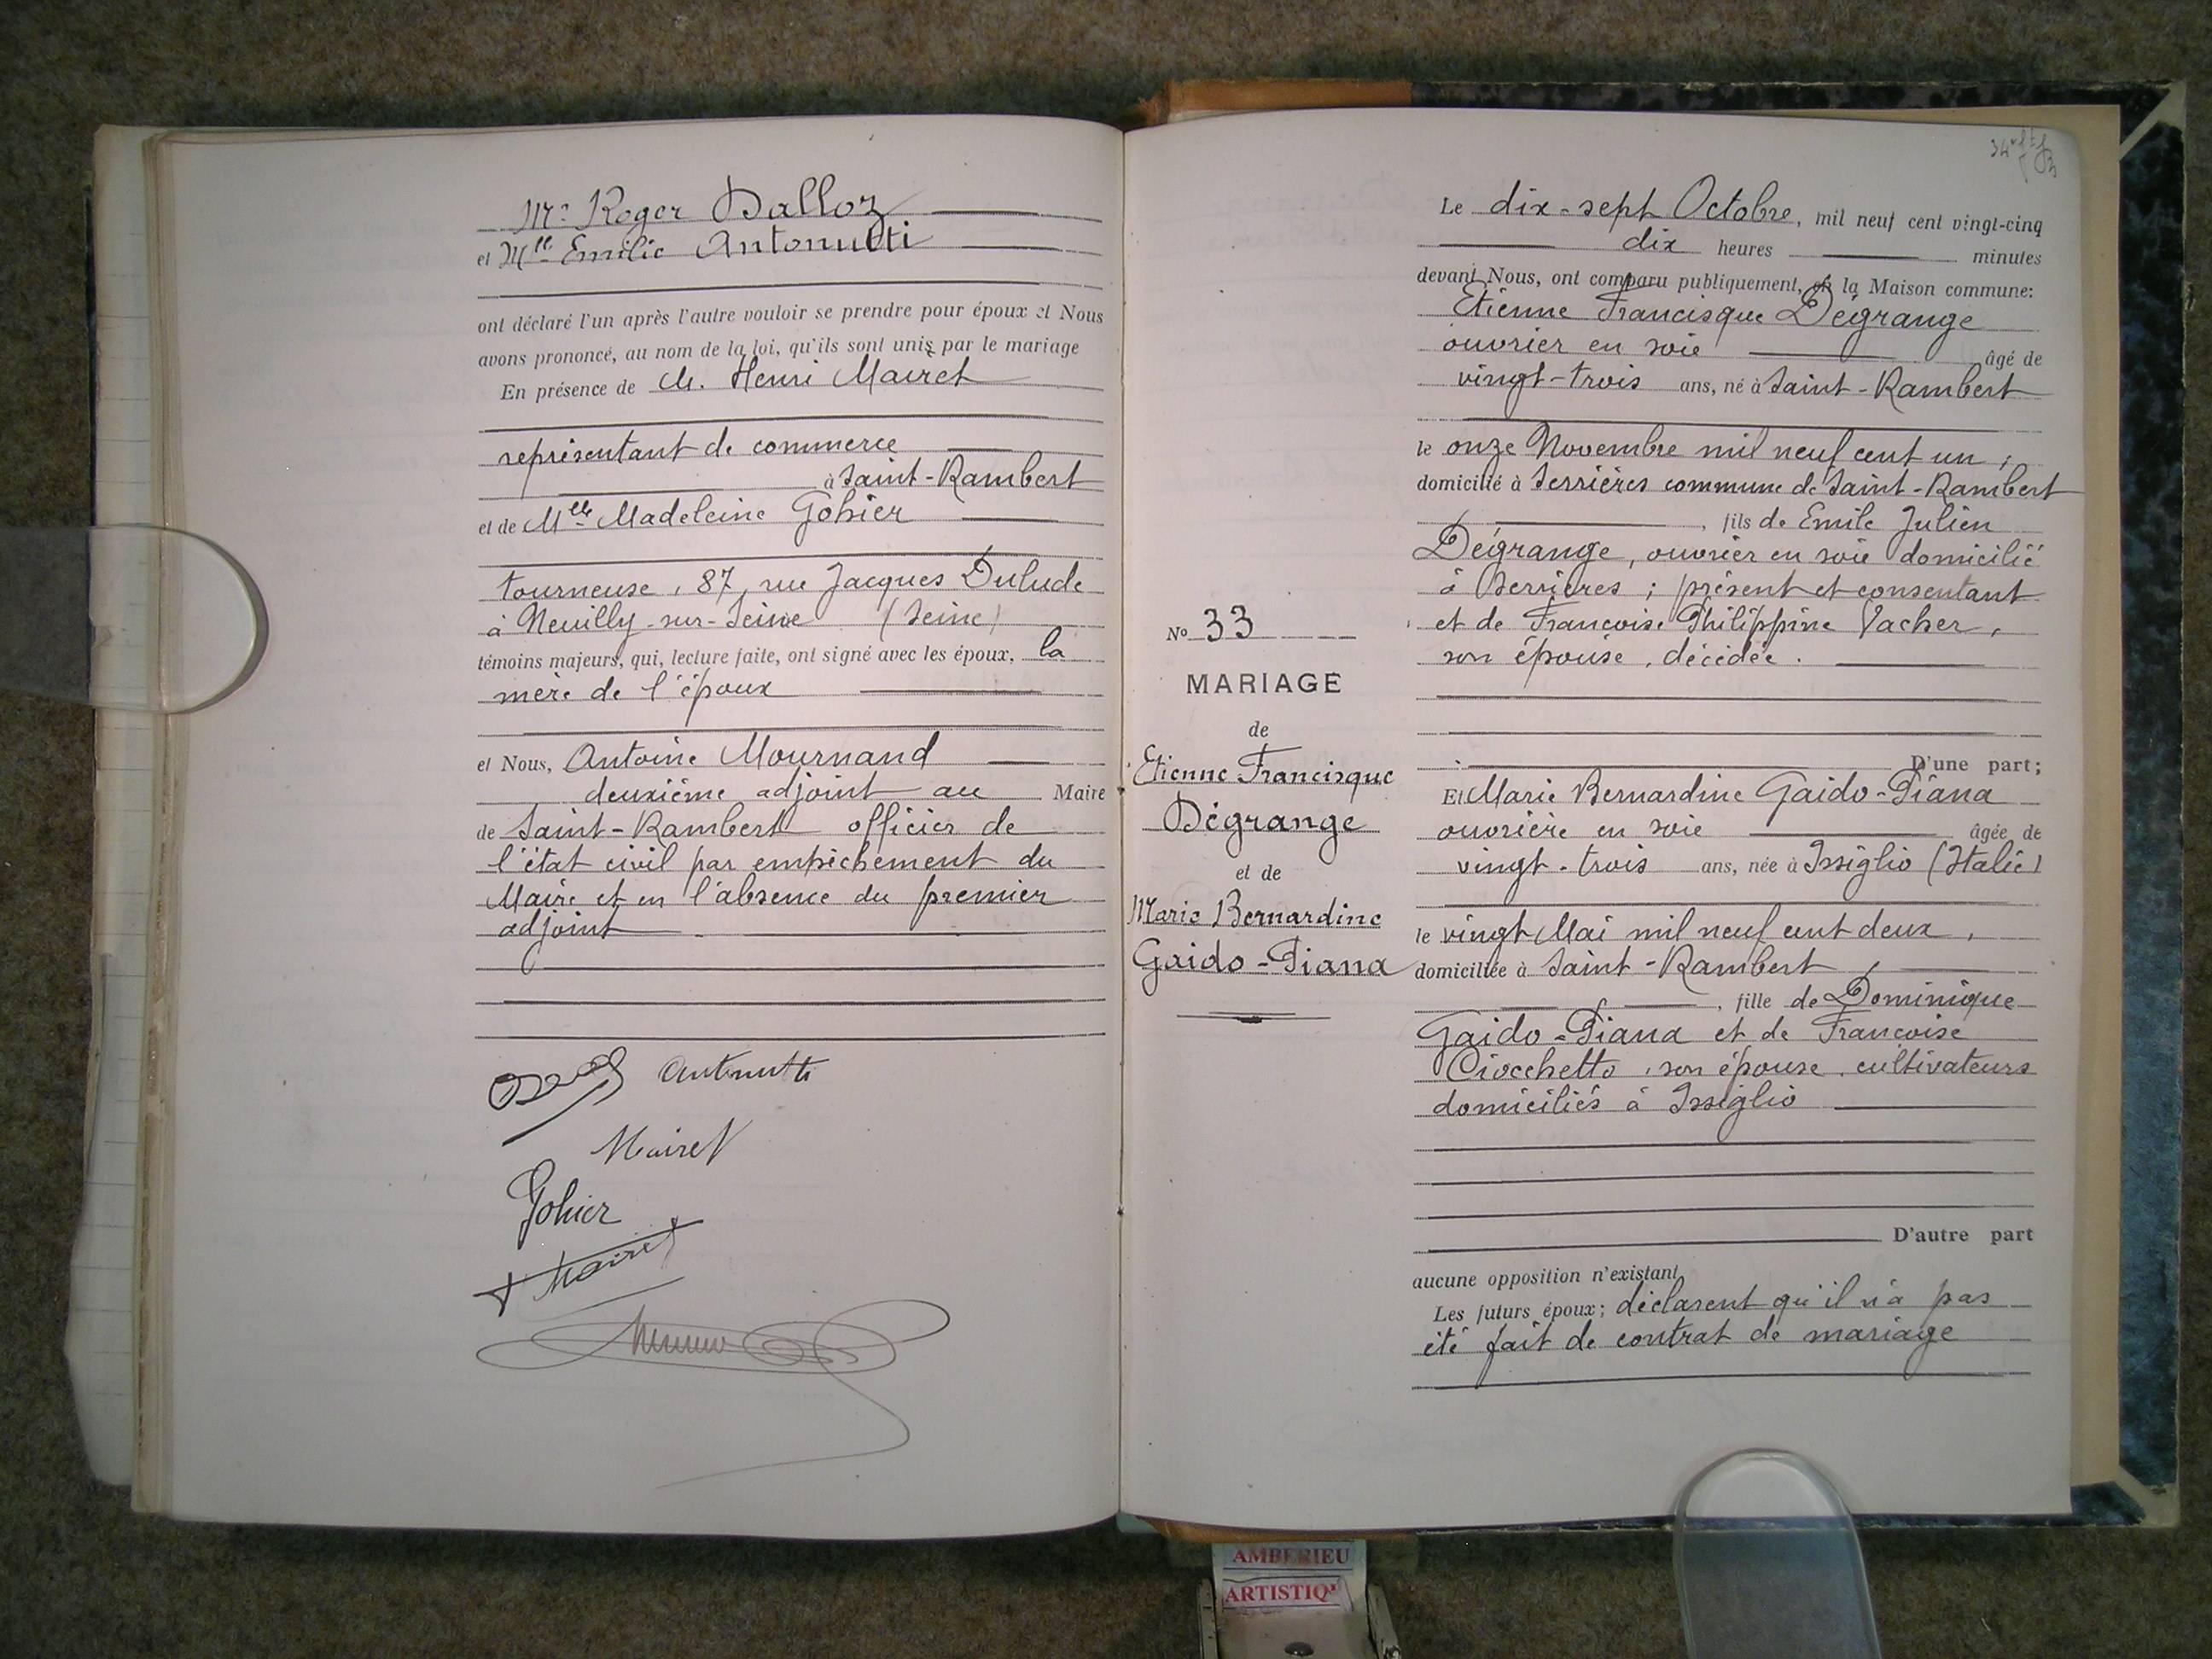 Mr Roger Dalloz
et Mlle Emilie Antonutti
ont déclaré l'un après l'autre vouloir se prendre pour époux et Nous
avons prononcé, au nom de la loi, qu'ils sont unis par le mariage
En présence de M. Henri Mairet
représentant de commerce
à Saint-Rambert
et de Melle Madeleine Gohier
tourneuse, 87, rue Jacques Dulude
à Neuilly-sur-Seine (Seine)
témoins majeurs, qui, lecture faite, ont signé avec les époux, la
mère de l'époux
et Nous, Antoine Mournand
deuxième adjoint au Maire
de Saint-Rambert officier de
l'état civil par empêchement du
Maire et en l'absence du premier
adjoint
Antonutti
Mairet
Gohier
Mairet
Le dix-sept Octobre, mil neuf cent vingt-cinq
dix heures minutes
devant Nous, ont comparu publiquement, en la Maison commune:
Etienne Francisque Dégrange
ouvrier en soie âgé de
vingt-trois ans, né à Saint-Rambert
le onze Novembre mil neuf cent un,
domicilié à Serrières commune de Saint-Rambert
, fils de Emile Julien
Dégrange, ouvrier en soie domicilié
à Serrières ; présent et consentant
et de Françoise Philippine Vacher,
son épouse, décédée.
D'une part;
Et Marie Bernardine Gaido-Piana
ouvrière en soie âgée de
vingt-trois ans, née à Issiglio (Italie)
le vingt Mai mil neuf cent deux,
domiciliée à Saint-Rambert
, fille de Dominique
Gaido-Piana et de Françoise
Ciocchetto, son épouse, cultivateurs
domiciliés à Issiglio
D'autre part
aucune opposition n'existant
Les futurs époux; déclarent qu'il n'a pas
été fait de contrat de mariage
No 33
MARIAGE
de
Etienne Francisque
Dégrange
et de
Marie Bernardine
Gaido-Piana
AMBERIEU
ARTISTIQ'